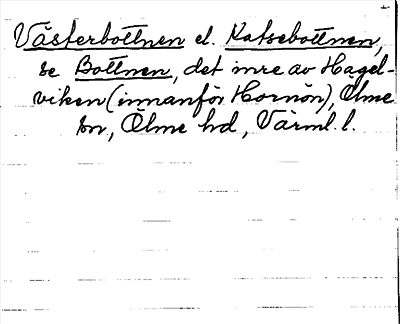 Västerbottnen el. Katsebottnen,
se Bottnen, det inre av Hagel-
viken (innanför Hornön), Ölme
sn, Ölme hd, Värml. l.